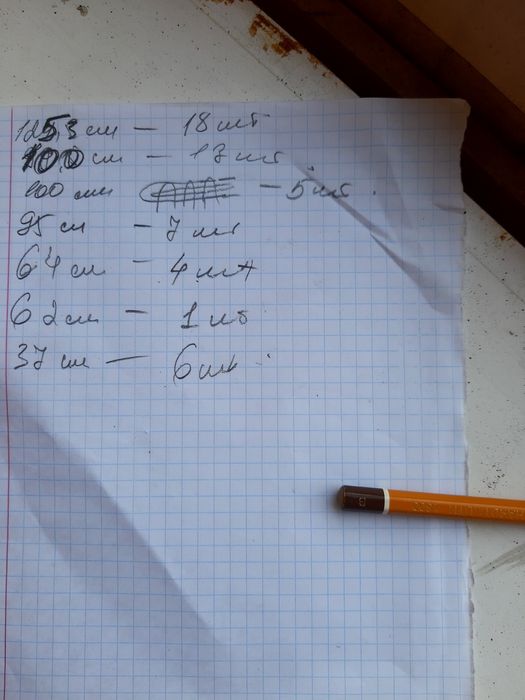 125,3 см – 18 шт
100 см – 17 шт
100 см – 5 шт.
95 см – 7 шт
64 см – 4 шт
62 см – 1 шт
37 см – 6 шт.
В